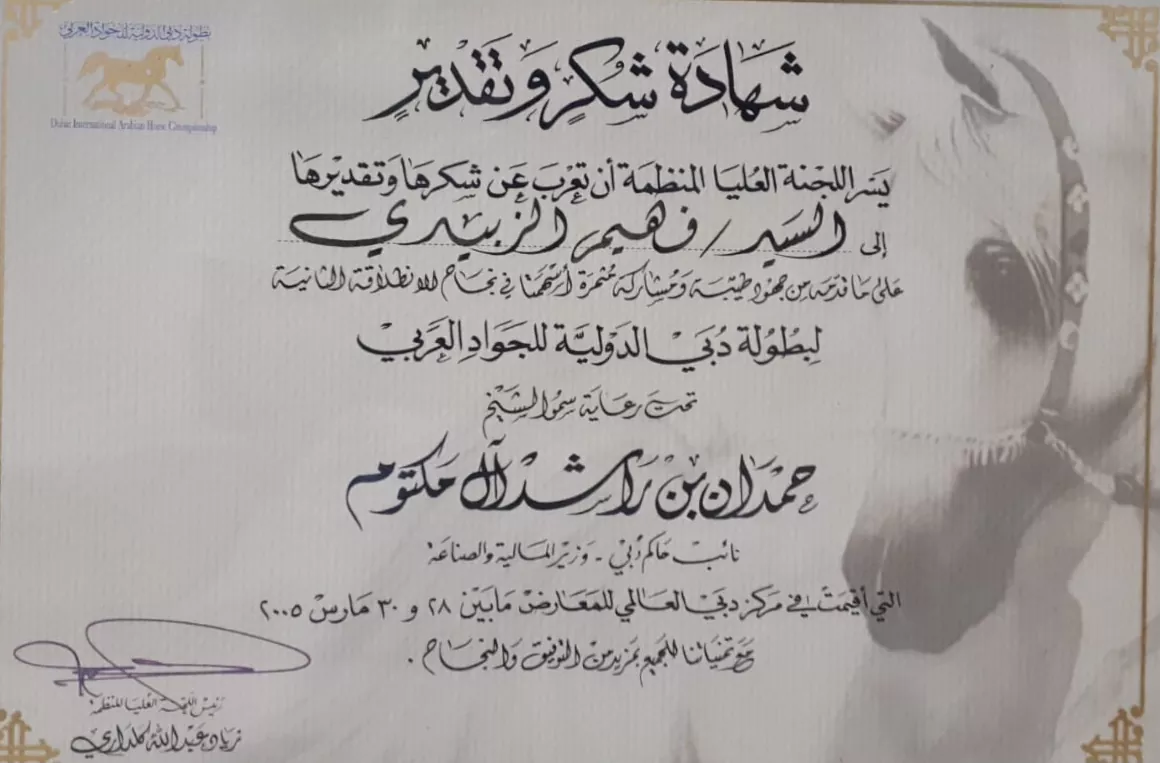 بطولة دبي الدولية للجواد العربي
Dubai International Arabian Horse Championship
شهادة شكر وتقدير
يسر اللجنة العليا المنظمة أن تعرب عن شكرها وتقديرها
إلى السيد / فهيم الزبيدي
على ما قدمه من جهود طيبة ومشاركة مثمرة أسهمتا في نجاح الانطلاقة الثانية
لبطولة دبي الدولية للجواد العربي
تحت رعاية سمو الشيخ
حمدان بن راشد آل مكتوم
نائب حاكم دبي - وزير المالية والصناعة
التي أقيمت في مركز دبي العالمي للمعارض ما بين ٢٨ و ٣٠ مارس ٢٠٠٥
مع تمنياتنا للجميع بمزيد من التوفيق والنجاح .
رئيس اللجنة العليا المنظمة
زياد عبدالله كلداري